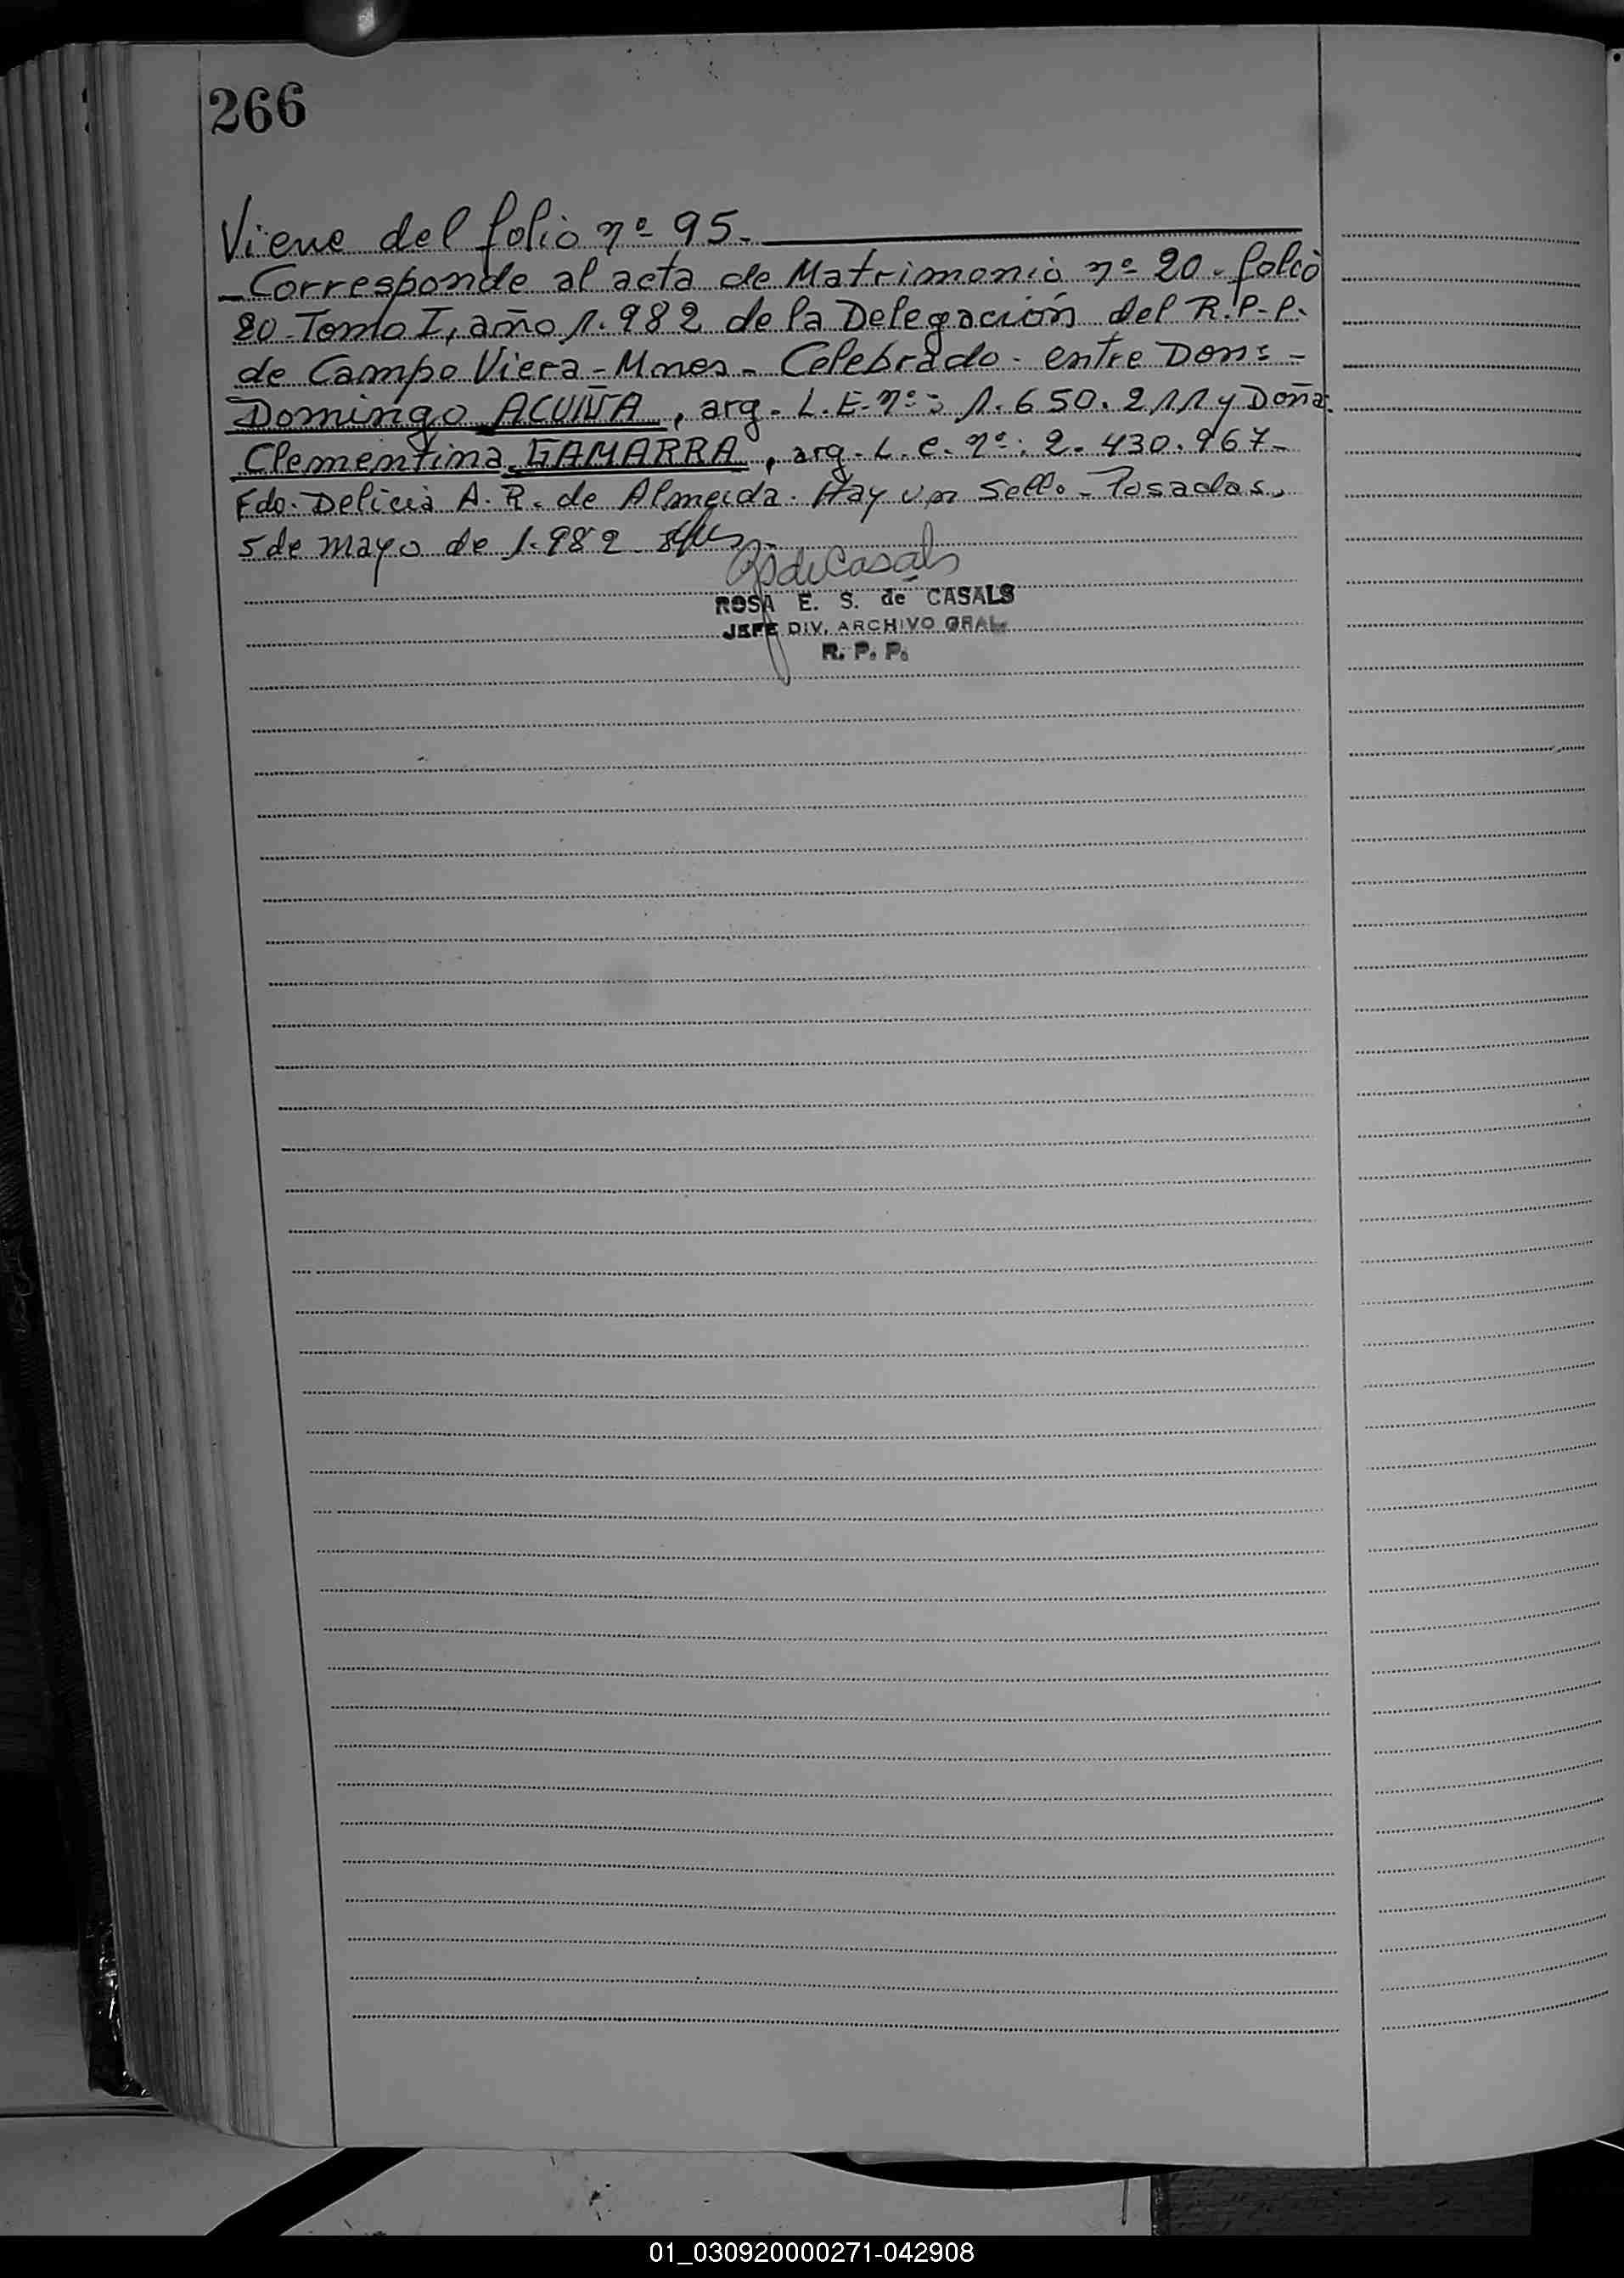 266
Viene del folio nº 95.
Corresponde al acta de Matrimonio nº 20. folio
20. Tomo I, año 1.982 de la Delegación del R.P.P.
de Campo Viera - Mnes - Celebrado entre Don: -
Domingo ACUÑA, arg. L.E. nº: 1.650.211 y Doña
Clementina GAMARRA, arg. L.C. nº: 2.430.967-
Fdo. Delicia A. R. de Almeida. Hay un sello - Posadas,
5 de mayo de 1.982
deCasals
ROSA E. S. de CASALS
JEFE DIV. ARCHIVO GRAL.
R. P. P.
01_030920000271-042908